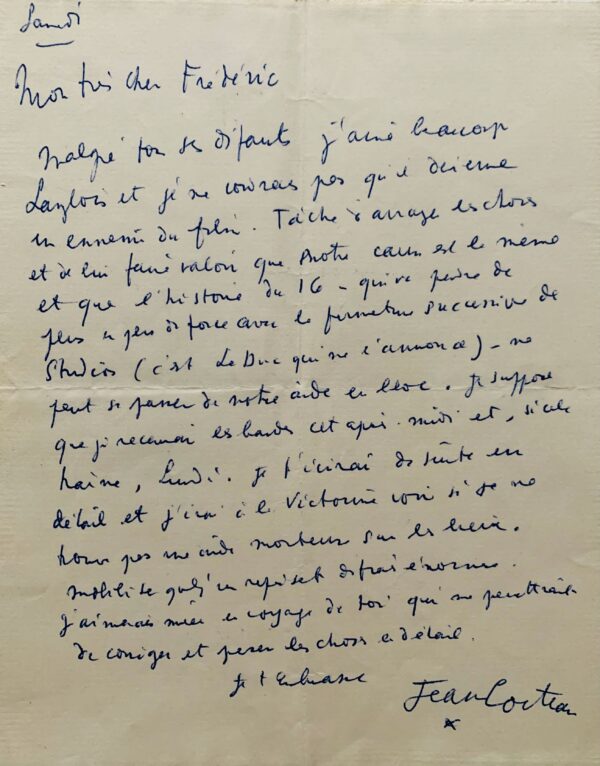 Samedi
Mon très cher Frédéric
Malgré tous ses défauts j'aime beaucoup
Langlois et je ne voudrais pas qu'il devienne
un ennemi du film. Tâche d'arranger les choses
et de lui faire valoir que notre cause est la même
et que l'histoire du 16 - qui va perdre de
plus en plus de force avec la fermeture successive de
Studios (c'est Le Duc qui me l'annonce) - ne
peut se passer de notre aide en bloc. Je suppose
que je recevrai les bandes cet après-midi et, si cela
traîne, Lundi. Je t'écrirai de suite en
détail et j'irai à la Victorine voir si je ne
trouve pas une aide monteuse sur les lieux.
mobilise
J'aimerais mieux un voyage de toi qui me permettrait
de corriger et peser les choses en détail.
Je t'embrasse
Jean Cocteau